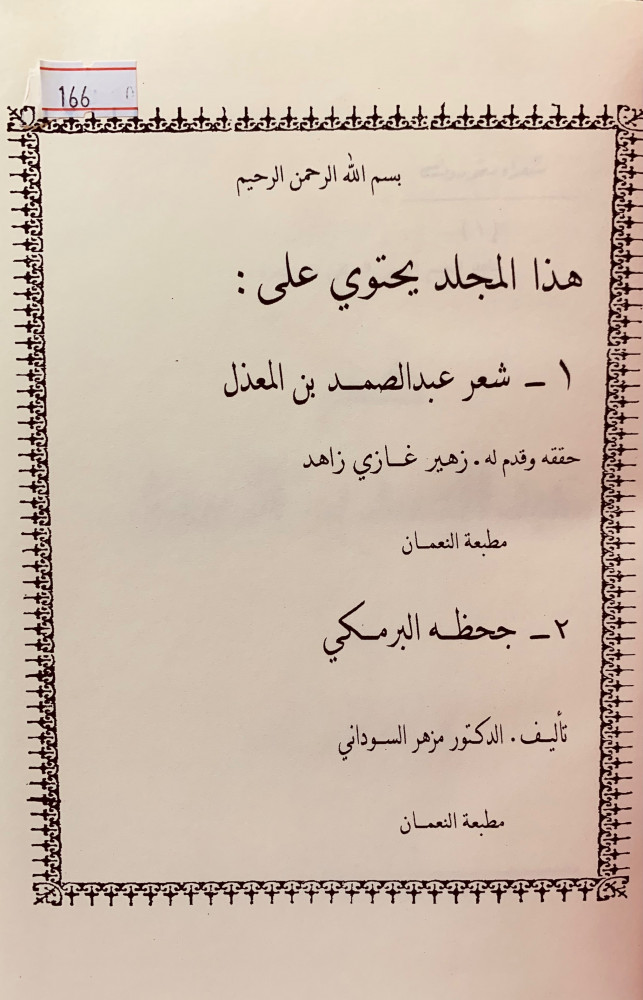 166
بسم الله الرحمن الرحيم
هذا المجلد يحتوي على :
١ ـ شعر عبدالصمد بن المعذل
حققه وقدم له . زهير غازي زاهد
مطبعة النعمان
٢ ـ جحظه البرمكي
تأليف . الدكتور مزهر السوداني
مطبعة النعمان